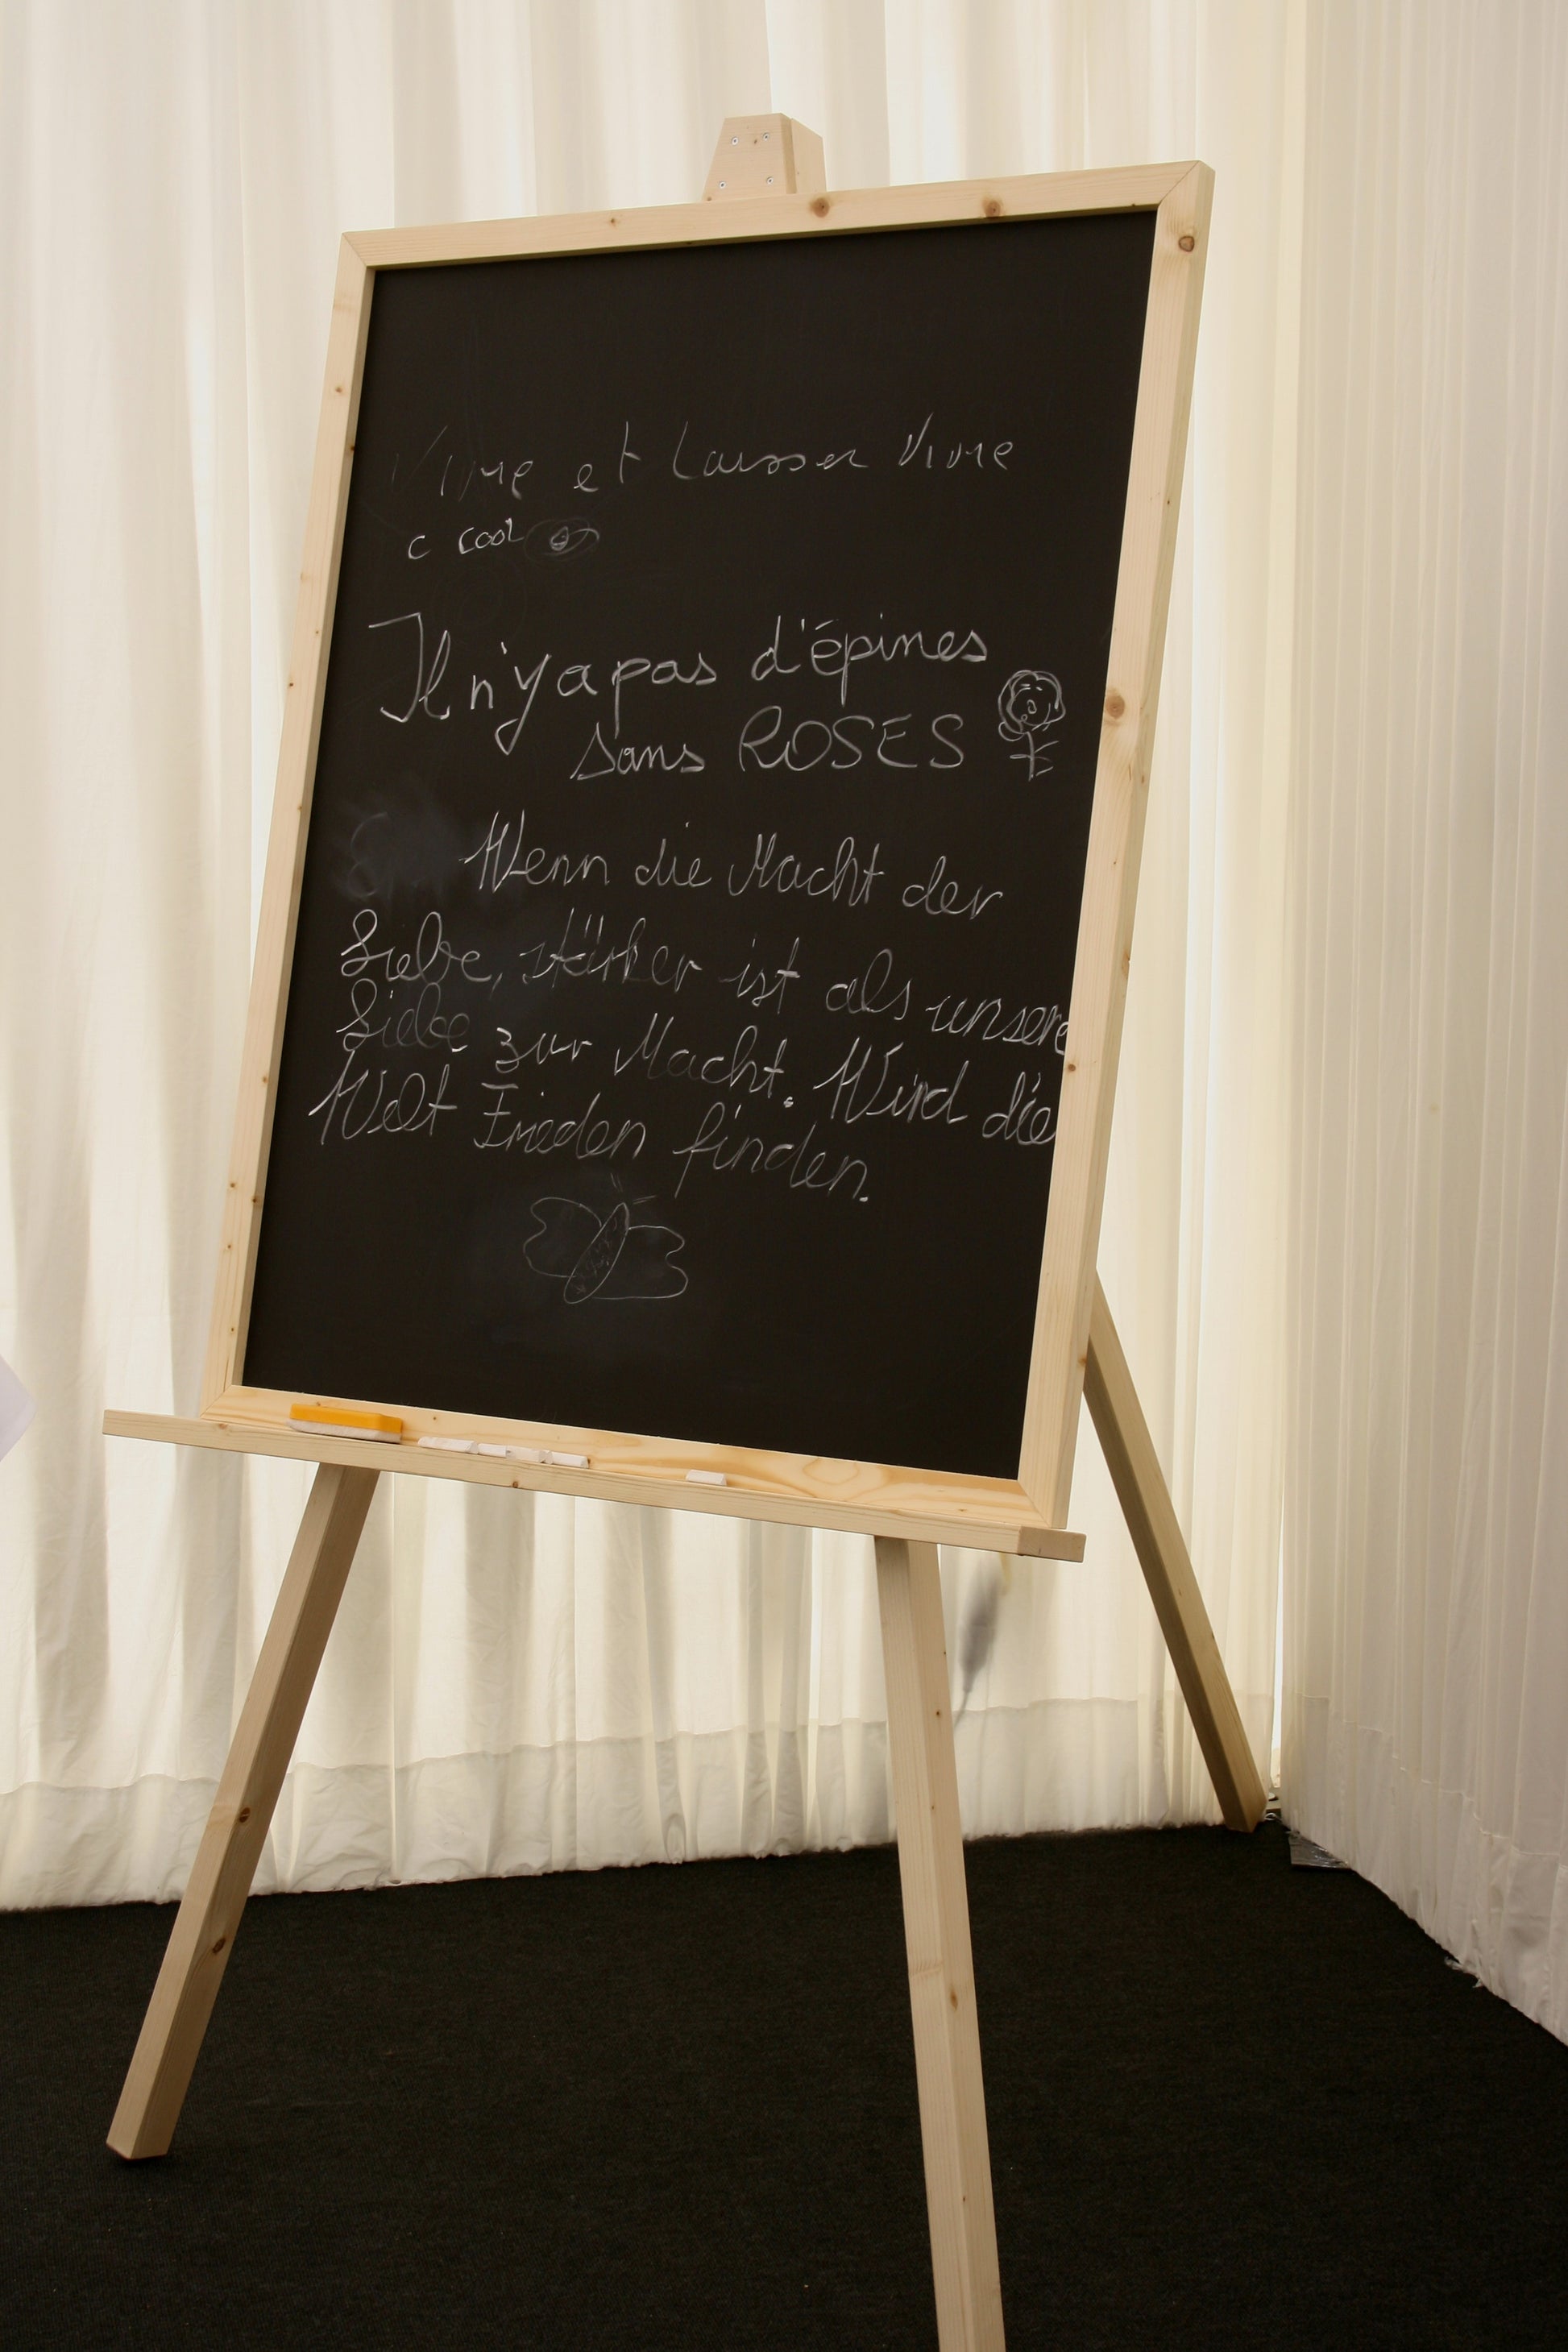 Vivre et laisser vivre
c cool
Il n'y a pas d'épines
sans ROSES
Wenn die Macht der
Liebe, stärker ist als unsere
Liebe zur Macht. Wird die
Welt Frieden finden.